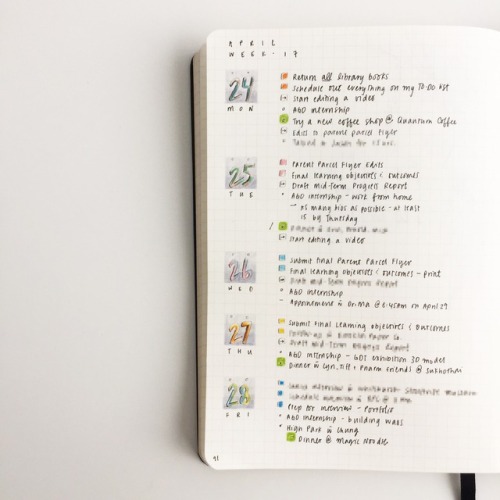 APRIL
WEEK-17
24
MON
Return all library books
Schedule out everything on my TO-DO LIST
Start editing a video
AGO internship
Try a new coffee shop @ Quantum Coffee
Edits to parent parcel flyer
25
TUE
Parent Parcel Flyer Edits
Final learning objectives & outcomes
Draft Mid-Term Progress Report
AGO internship - work from home
→ as many bios as possible - at least
15 by Thursday
Start editing a video
26
WED
Submit final Parent Parcel Flyer
Final learning objectives & outcomes - print
Draft Mid-Term Progress Report
AGO internship
Appointment @ 6:45am on April 29
27
THU
Submit Final Learning objectives & outcomes
Draft Mid-Term Progress Report
AGO internship - exhibition 3D model
Dinner w Lyn, Tiff & Pharm friends @ Sukhothai
28
FRI
Prep for interview - Portfolio
AGO internship - building walls
High Park w Chung
Dinner @ Magic Noodle